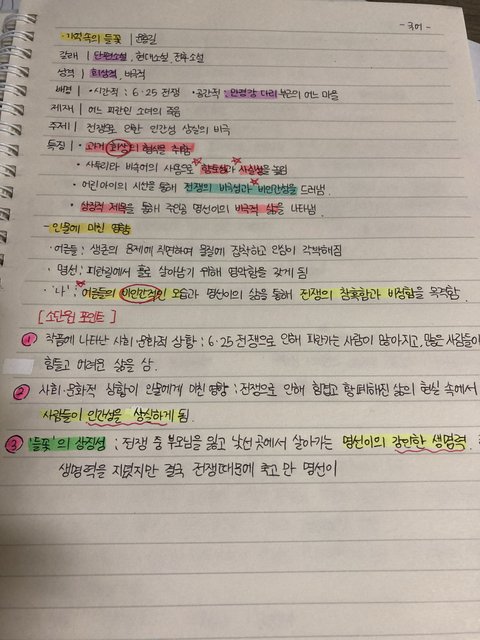 - 국어 -
· 기억속의 들꽃 | 윤흥길
갈래 | 단편소설, 현대소설, 전후소설
성격 | 회상적, 비극적
배경 | • 시간적 : 6·25 전쟁 • 공간적 : 만경강 다리 부근의 어느 마을
제재 | 어느 피란민 소녀의 죽음
주제 | 전쟁으로 인한 인간성 상실의 비극
특징 | • 과거 회상의 형식을 취함
• 사투리와 비속어의 사용으로 향토성과 사실성을 높임
• 어린아이의 시선을 통해 전쟁의 비극성과 비인간성을 드러냄.
• 상징적 제목을 통해 주인공 명선이의 비극적 삶을 나타냄.
- 인물에 미친 영향
· 어른들 : 생존의 문제에 직면하여 물질에 집착하고 인심이 각박해짐
· 명선 : 피란길에서 홀로 살아남기 위해 영악함을 갖게 됨
· '나' : 어른들의 비인간적인 모습과 명선이의 삶을 통해 전쟁의 참혹함과 비정함을 목격함.
[소단원 포인트]
1 작품에 나타난 사회·문화적 상황 : 6·25 전쟁으로 인해 피란가는 사람이 많아지고, 많은 사람들이
힘들고 어려운 삶을 삼.
2 사회·문화적 상황이 인물에게 미친 영향 : 전쟁으로 인해 힘겹고 황폐해진 삶의 현실 속에서
사람들이 인간성을 상실하게 됨.
3 '들꽃'의 상징성 : 전쟁 중 부모님을 잃고 낯선 곳에서 살아가는 명선이의 강인한 생명력.
생명력을 지녔지만 결국 전쟁때문에 죽고 만 명선이